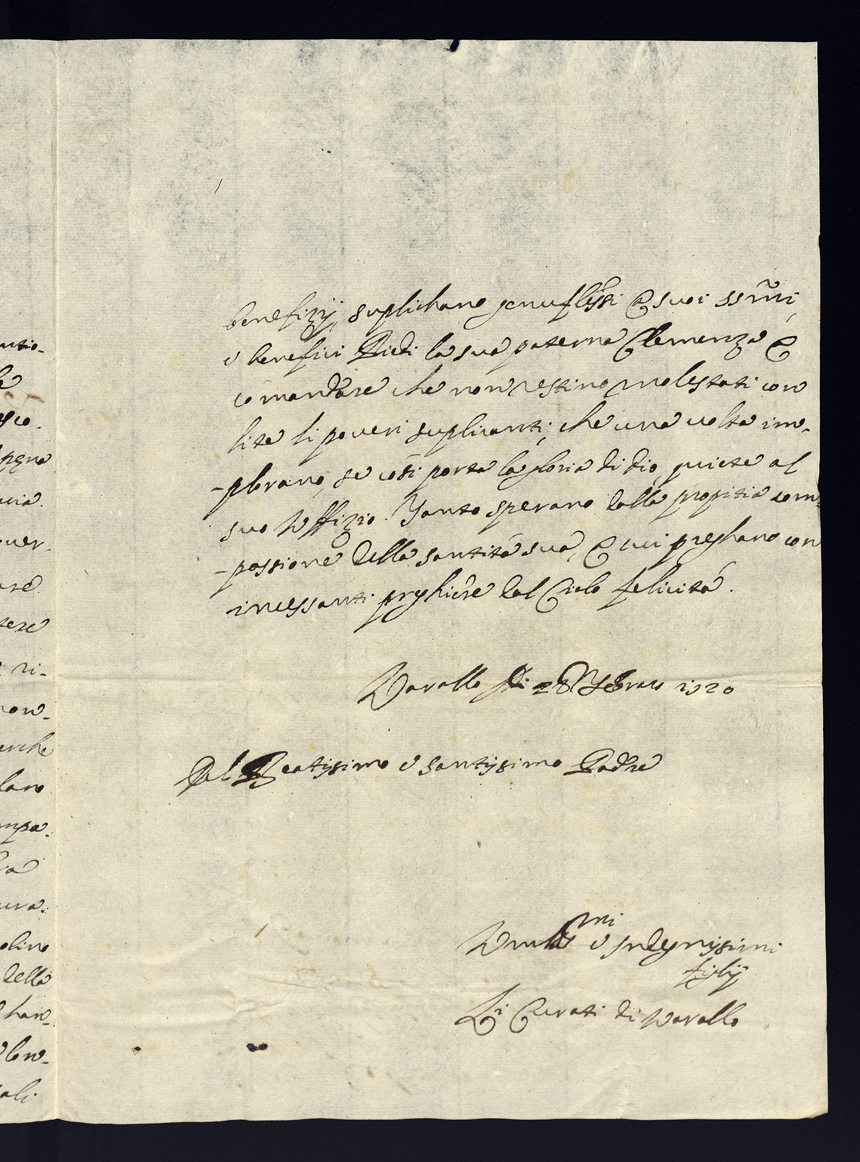 benefizij suplichano genuflessi e suoi ss.mi
e benefici Piedi la sua paterna Clemenza e
comandare che non restino molestati con
lite li poveri suplicanti, che una volta im-
-plorano, se così porta la gloria di dio, quiete al
suo Uffizio. Tanto sperano dalla propitia com-
-passione della santità sua, e cui preghano con
incessanti preghiere dal Cielo felicità.
Varallo li 28 1720
Del Beatissimo e Santissimo Padre
Umil.mi e Indegnissimi
figlij
Li Curati di Varallo
ntio-
ver-
tere
ri-
non-
erche
laro
mpa-
ura-
olino
della